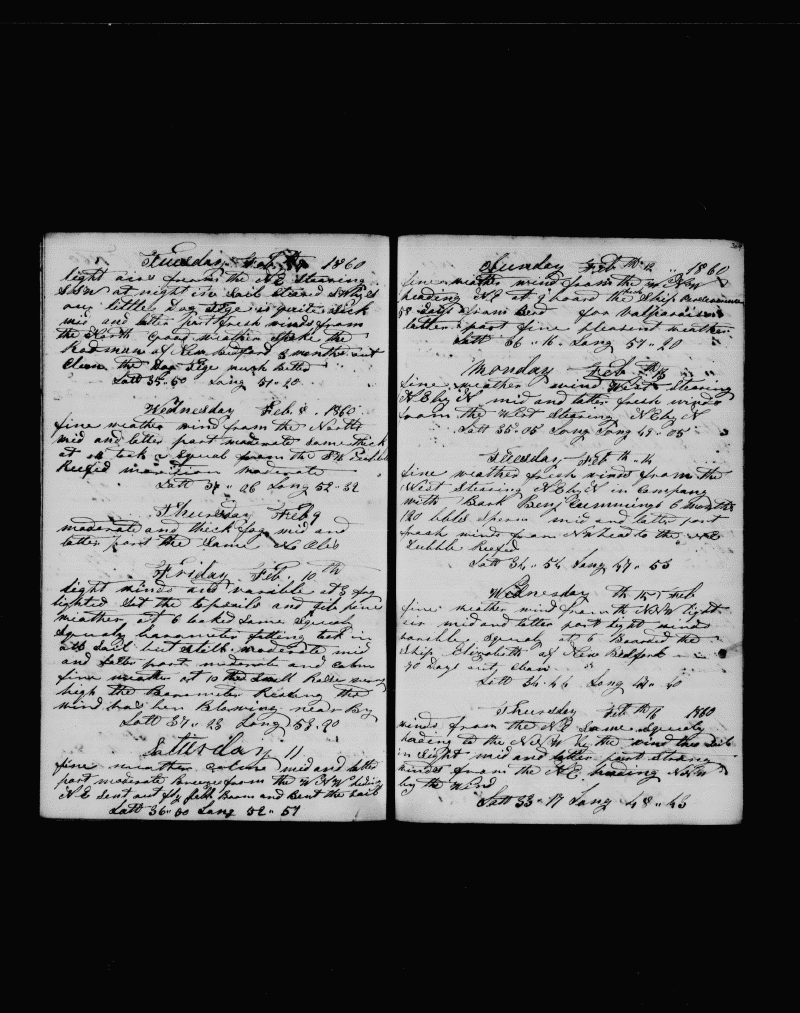 Tuesday Feb 7th 1860
light airs from the NE Steering
SSW at night in Sail Steard S W by S
our little Dog Stge is quite Sick
mid and latter part fresh winds from
the North good weather Spoke the
Rodman of New Bedford 3 months out
Clean the Dog Stge much better
Latt 35"50 Long 51"20
Wednesday Feb. 8. 1860
fine weather wind from the North
mid and latter part moderate Some thick
at took a Squal from the SW Double
Reefed moderate
Latt 37 " 26 Long 52"32
Thursday Feb 9
moderate and thick fog mid and
latter part the Same No Obs
Friday Feb. 10 th
light winds and varible at 3 fog
lighted Set the topsails and fine
weather at 6 looked Some Squaly
Squaly barometer falling took in
all Sail but Still moderate mid
and latter part moderate and calm
fine weather at 10 the Swell Rolls very
high the Barometer Riseing the
wind has ben Blowing near By
Latt 37"23 Long 53"20
Saturday 11
fine weather calm mid and latter
part moderate Breeze from the W N W heding
N E Sent out fly Jibb Boom and Bent the Sail
Latt 36"50 Long 52"57
Sunday Feb th 12 " 1860
fine weather wind from the W N W
heading NE at 9 board the Ship
58 days from for Valparaiso
latter part fine pleasent weather
Latt 36 " 16 Long 51 " 20
Monday Feb th 13
fine weather wind West Stearing
N E by N mid and latter fresh winds
from the West Stearing N E by N
Latt 35"05 Long Long 49"05
Tuesday Feb th 14
fine weather fresh winds from the
West Stearing N E by N in Company
with Bark Benj Cummings 6 months
120 bbls Sperm mid and latter part
fresh winds from N head to the
Dubble Reefed
Latt 34 " 54 Long 47 " 55
Wednesday th 15 Feb
fine weather wind from th N N W light
air mid and latter part light winds
varible Squaly at 6 Boarded the
Ship Elizabeth of New Bedford
70 Days out, Clean
Latt 34"44 Long 47"40
Thursday Feb th 16 1860
winds from the N E Some Squaly
heding to the N N W by the wind two Sail
in Sight mid and latter part Strong
winds from the N E heading N N W
by the Wind
Latt 33"17 Long 48"43